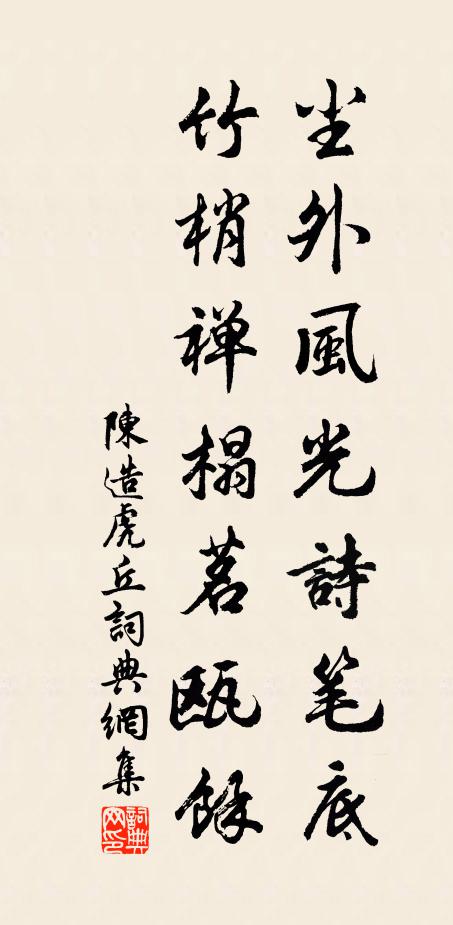 尘外風光詩笔底
竹梢禅榻茗瓯餘
陳造虎丘詞典網集
詞典網印